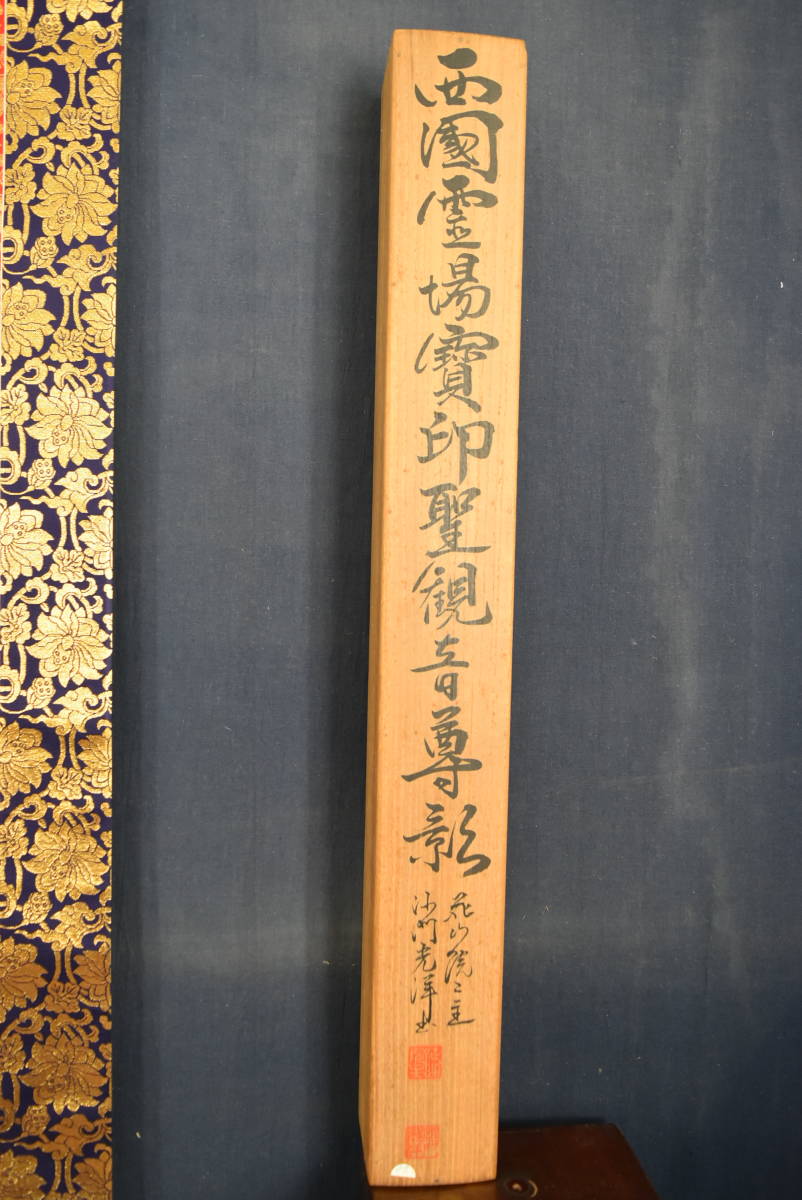 西國霊場寶印聖観音尊影
花山院々主
沙門光洋書